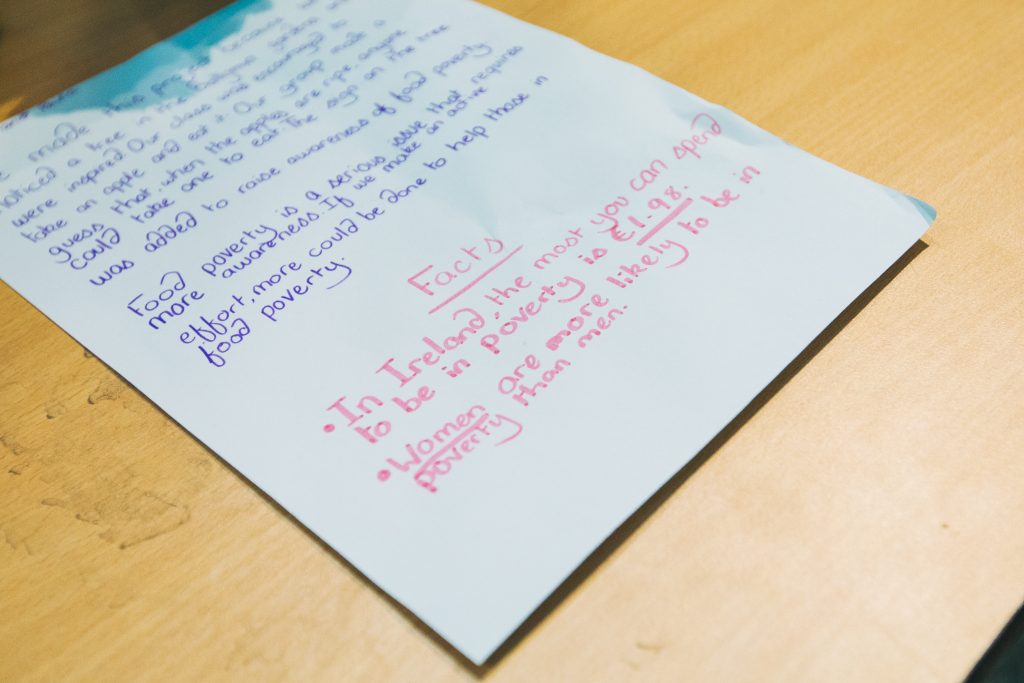 made this because we
noticed a tree in the building garden and
were inspired. Our class was encouraged to
take an apple and eat it. Our group made a
guess that, when the apples are ripe, anyone
could take one to eat. The sign on the tree
was added to raise awareness of food poverty
Food poverty is a serious issue that requires
more awareness. If we make an active
effort, more could be done to help those in
food poverty.
Facts
• In Ireland, the most you can spend
to be in poverty is €1.98.
• Women are more likely to be in
poverty than men.